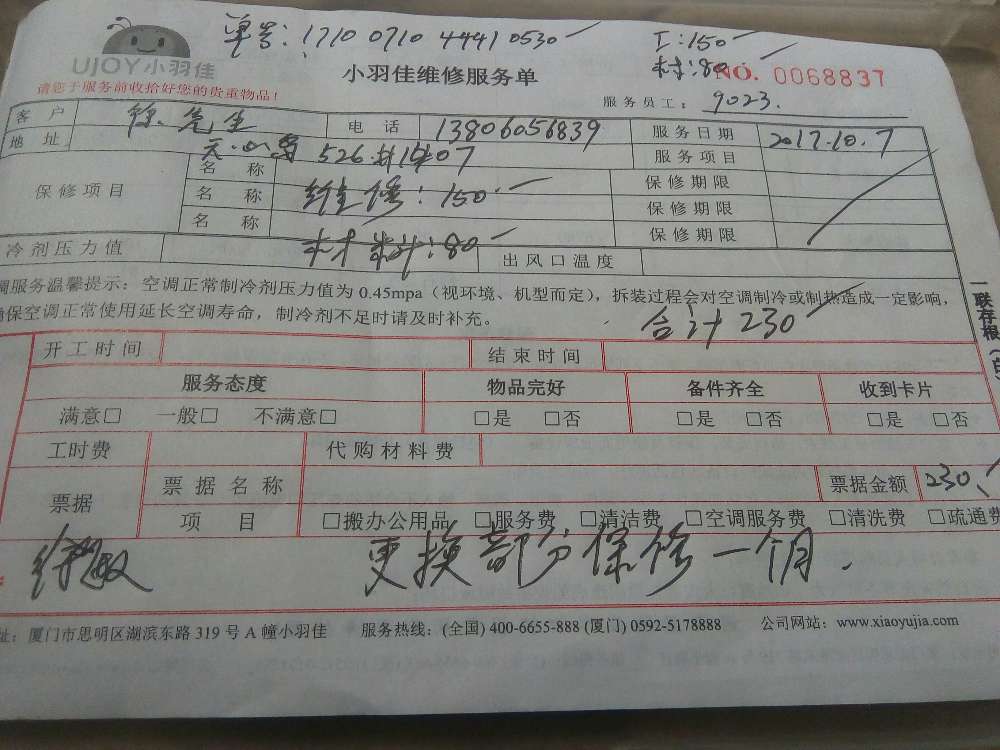 单号：1710 0710 4441 0530
工：150
材：80
UJOY小羽佳
小羽佳维修服务单
NO. 0068837
请您于服务前收拾好您的贵重物品！
服务员工： 9023.
客 户 徐先生 电 话 13806056839 服务日期 2017.10.7
地 址 526 07 服务项目
保修项目 名 称 维修：150 保修期限
名 称 保修期限
名 称 材料：80 保修期限
冷剂压力值 出风口温度
调服务温馨提示：空调正常制冷剂压力值为 0.45mpa（视环境、机型而定），拆装过程会对空调制冷或制热造成一定影响，
确保空调正常使用延长空调寿命，制冷剂不足时请及时补充。
合计 230
一联存根（白
开工时间 结束时间
服务态度 物品完好 备件齐全 收到卡片
满意□ 一般□ 不满意□ □是 □否 □是 □否 □是 □否
工时费 代购材料费
票据 票据名称 票据金额 230
项 目 □搬办公用品 □服务费 □清洁费 □空调服务费 □清洗费 □疏通费
更换部分保修一个月.
址：厦门市思明区湖滨东路 319 号 A 幢小羽佳 服务热线：(全国) 400-6655-888 (厦门) 0592-5178888 公司网站：www.xiaoyujia.com